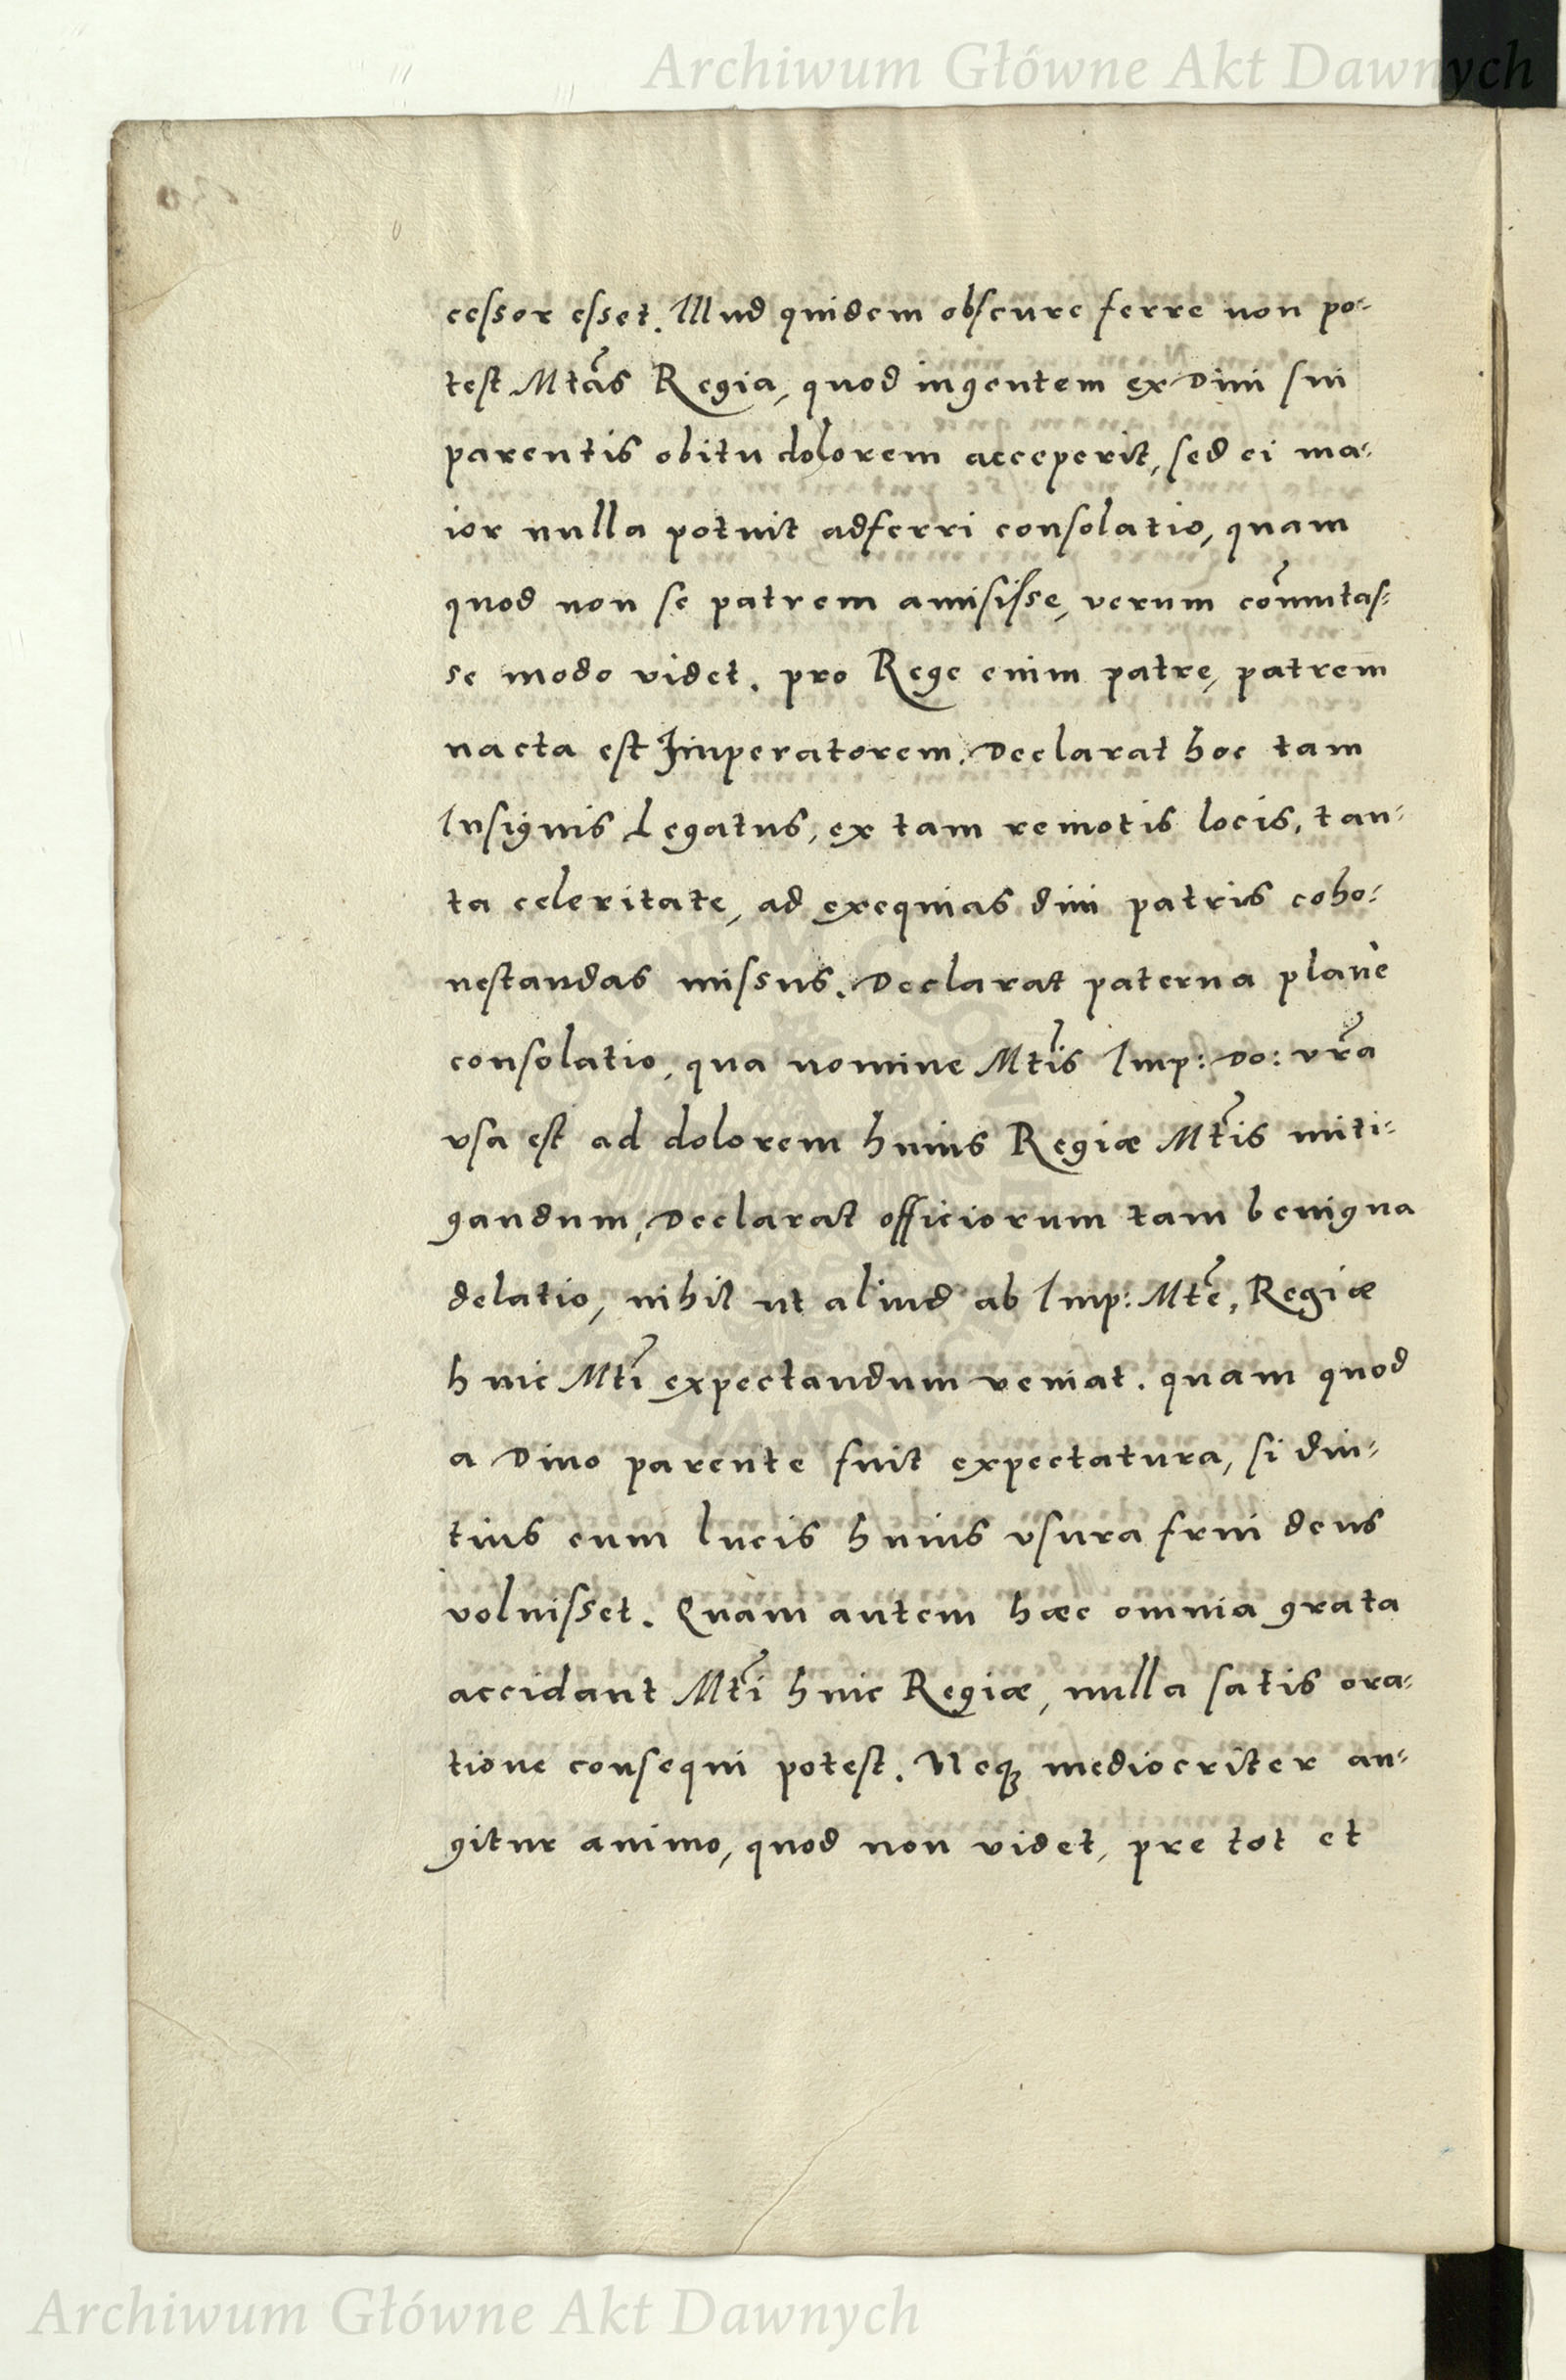 Archiwum Główne Akt Dawnych
cessor esset. Illud quidem obscure ferre non po-
test Mtas Regia, quod ingentem ex Divi sui
parentis obitu dolorem acceperit, sed ei ma-
ior nulla potuit adferri consolatio, quam
quod non se patrem amisisse, verum cōmutas-
se modo videt. pro Rege enim patre, patrem
nacta est Imperatorem. Declarat hoc tam
Insignis Legatus, ex tam remotis locis, tan-
ta celeritate, ad exequias divi patris coho-
nestandas missus. Declarat paterna planè
consolatio, qua nomine Mtis Imp: Do: vra
vsa est ad dolorem huius Regiæ Mtis miti-
gandum, Declarat officiorum tam benigna
delatio, nihil ut aliud ab Imp: Mte, Regiæ
huic Mti expectandum veniat. quam quod
a Divo parente fuit expectatura, si diu-
tius eum lucis huius vsura frui deus
voluisset. Quam autem hæc omnia grata
accidant Mti huic Regiæ, nulla satis ora-
tione consequi potest. Neqꝫ mediocriter an-
gitur animo, quod non videt, pre tot et
Archiwum Główne Akt Dawnych